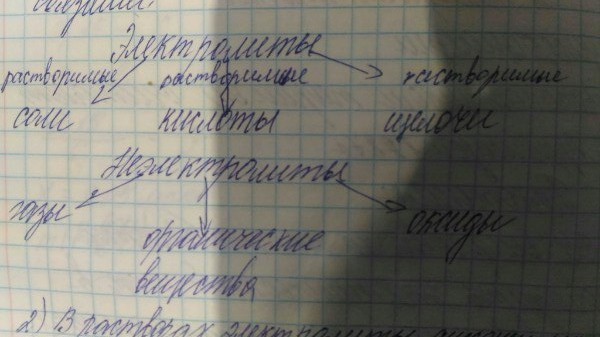 Электролиты
растворимые растворимые растворимые
соли кислоты щелочи
Неэлектролиты
газы оксиды
органические
вещества
2) В растворах электролиты